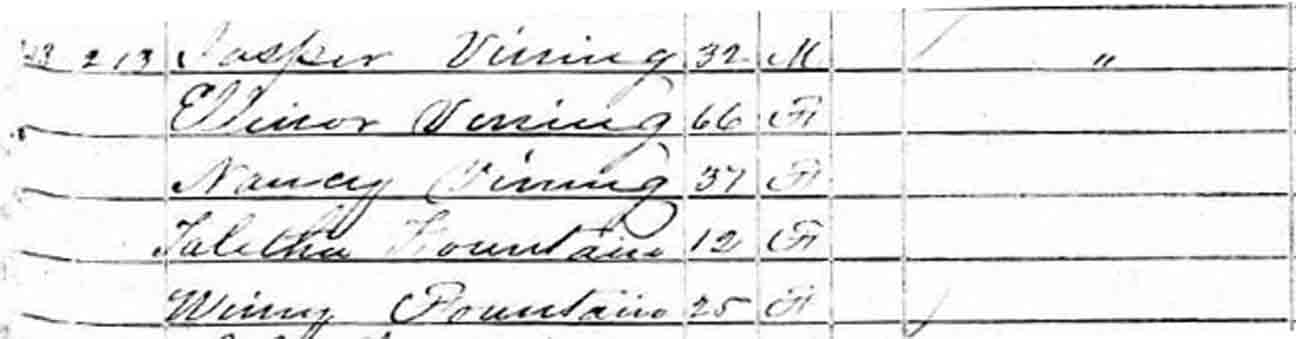 213 Jasper Vining 32 M "
Ellinor Vining 66 F
Nancy Vining 37 F
Talitha Fountain 12 F
Winny Fountain 25 F